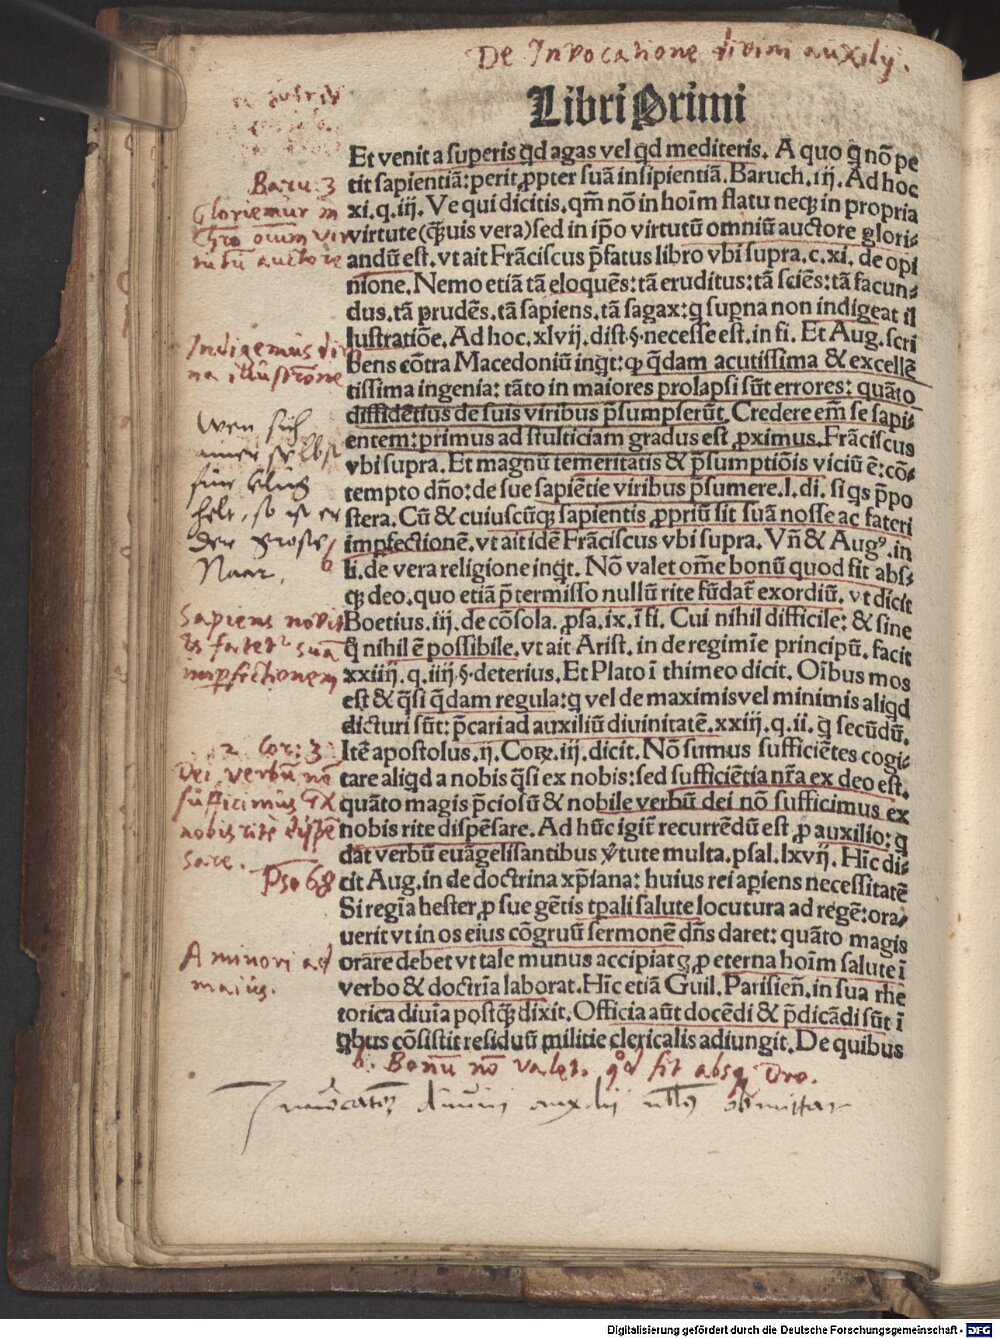 De Invocatione divini auxilij.
Libri Primi
Et venit a superis qd agas vel qd mediteris. A quo q̄ nō pe
tit sapientiā: perit ꝓpter suā insipientiā. Baruch. iij. Ad hoc
xi. q. iij. Ve qui dicitis. qm̄ nō in hoīm flatu necꝫ in propria
virtute (q̄uis vera) sed in ip̄o virtutū omniū auctore glori⸗
andū est. vt ait Frāciscus p̄fatus libro vbi supra. c. xi. de opi
nione. Nemo etiā tā eloquēs: tā eruditus: tā sciēs: tā facun⸗
dus. tā prudēs. tā sapiens. tā sagax: q supna non indigeat il
lustratiōe. Ad hoc. xlvij. dist. §. necesse est. in fi. Et Aug. scri
bens cōtra Macedoniū inqt: ꝙ qdam acutissima & excellē
tissima ingenia: tāto in maiores prolapsi sūt errores: quāto
diffidētius de suis viribus p̄sumpserūt. Credere em̄ se sapi⸗
entem: primus ad stulticiam gradus est ꝓximus. Frāciscus
vbi supra. Et magnū temeritatis & p̄sumptiōis viciū ē: cō⸗
tempto dño: de sue sapiētie viribus p̄sumere. l. di. si qs p̄po
stera. Cū & cuiuscūqꝫ sapientis ꝓpriū sit suā nosse ac fateri
impfectionē. vt ait idē Frāciscus vbi supra. Vñ & Augꝰ. in
li. de vera religione inqt. Nō valet om̄e bonū quod fit abs⸗
qꝫ deo. quo etiā p̄termisso nullū rite fūdat̄ exordiū. vt dicit
Boetius. iij. de cōsola. ꝓsa. ix. ī fi. Cui nihil difficile: & sine
q̄ nihil ē possibile. vt ait Arist. in de regimīe principū. facit
xxiiij. q. iiij. §. deterius. Et Plato ī thimeo dicit. Oībus mos
est & q̄si qdam regula: q vel de maximis vel minimis aliqd
dicturi sūt: p̄cari ad auxiliū diuinitatē. xxiij. q. ii. q̄ secūdū.
Itē apostolus. ij. Coꝝ. iij. dicit. Nō sumus sufficiētes cogi⸗
tare aliqd a nobis q̄si ex nobis: sed sufficiētia nr̄a ex deo est.
quāto magis p̄ciosū & nobile verbū dei nō sufficimus ex
nobis rite dispēsare. Ad hūc igit̄ recurrēdū est ꝓ auxilio: q
dat verbū euāgelisantibus v̄tute multa. psal. lxvij. Hīc di⸗
cit Aug. in de doctrina xp̄iana: huius rei apiens necessitatē
Si regīa hester ꝓ sue gētis tpali salute locutura ad regē: ora⸗
uerit vt in os eius cōgruū sermonē dñs daret: quāto magis
orare debet vt tale munus accipiat q ꝓ eterna hoīm salute ī
verbo & doctrīa laborat. Hīc etiā Guil. Parisieñ. in sua rhe
torica diuīa postq̄ dixit. Officia aūt docēdi & p̄dicādi sūt ī
qbus cōsistit residuū militie clericalis adiungit. De quibus
Baru: 3
Gloriemur in
Chro̅ oium vir
tutū auctore
Indigemus di
na illustratione
Wen sich
einer selbst
für klug
helt, so ist er
der groste
Naar.
b
Sapiens novit
et fatetʳ suā
imperfectionem
2 Cor: 3
Dei verbū no̅
sufficimus ex
nobis rite dispe̅
sare.
Ps. 68
A minori ad
maius.
b. Bonū no̅ valet. qd fit absqꝫ Deo.
Digitalisierung gefördert durch die Deutsche Forschungsgemeinschaft - DFG